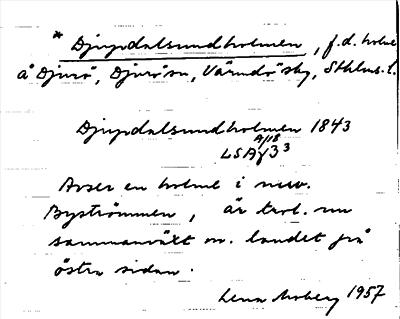 * Djupdalsundholmen, f.d. holme
å Djurö, Djurö sn, Värmdö sky, Sthlms l.
Djupdalsundholmen 1843
A/18
LSA γ3³
Avser en holme i nuv.
Byströmmen, är trol. nu
sammanväxt m. landet på
östra sidan.
Lena Moberg 1957